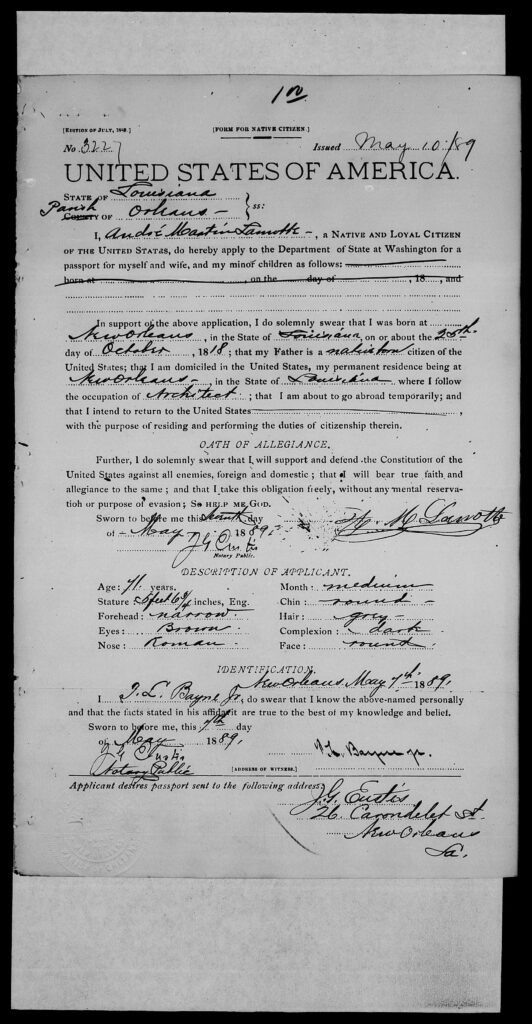 1 00
[EDITION OF JULY, 1888.] [FORM FOR NATIVE CITIZEN.]
No. 3227 Issued May 10 /89
UNITED STATES OF AMERICA.
STATE OF Louisiana
Parish County OF Orleans ss:
I, André Martin Lamotte, a NATIVE AND LOYAL CITIZEN
OF THE UNITED STATES, do hereby apply to the Department of State at Washington for a
passport for myself and wife, and my minor children as follows:
born at , on the day of , 18 , and
In support of the above application, I do solemnly swear that I was born at
New Orleans, in the State of Louisiana, on or about the
day of October, 1818; that my Father is a native born citizen of the
United States; that I am domiciled in the United States, my permanent residence being at
New Orleans, in the State of Louisiana where I follow
the occupation of Architect; that I am about to go abroad temporarily; and
that I intend to return to the United States
with the purpose of residing and performing the duties of citizenship therein.
OATH OF ALLEGIANCE.
Further, I do solemnly swear that I will support and defend the Constitution of the
United States against all enemies, foreign and domestic; that I will bear true faith and
allegiance to the same; and that I take this obligation freely, without any mental reserva-
tion or purpose of evasion; SO HELP ME GOD.
Sworn to before me this day
of May 1889. M. Lamotte
J G Eustis
Notary Public.
DESCRIPTION OF APPLICANT.
Age: 71 years. Mouth: medium
Stature 5 feet 6 3/4 inches, Eng. Chin: round
Forehead: narrow Hair: grey
Eyes: Brown Complexion: dark
Nose: Roman Face: round
IDENTIFICATION.
New Orleans May 7th 1889.
I T. L. Bayne Jr, do swear that I know the above-named personally
and that the facts stated in his affidavit are true to the best of my knowledge and belief.
Sworn to before me, this 7th day
of May 1889.
J G Eustis T. L. Bayne jr.
Notary Public [ADDRESS OF WITNESS.]
Applicant desires passport sent to the following address:
J. G. Eustis
26 Carondelet St.
New Orleans
La.